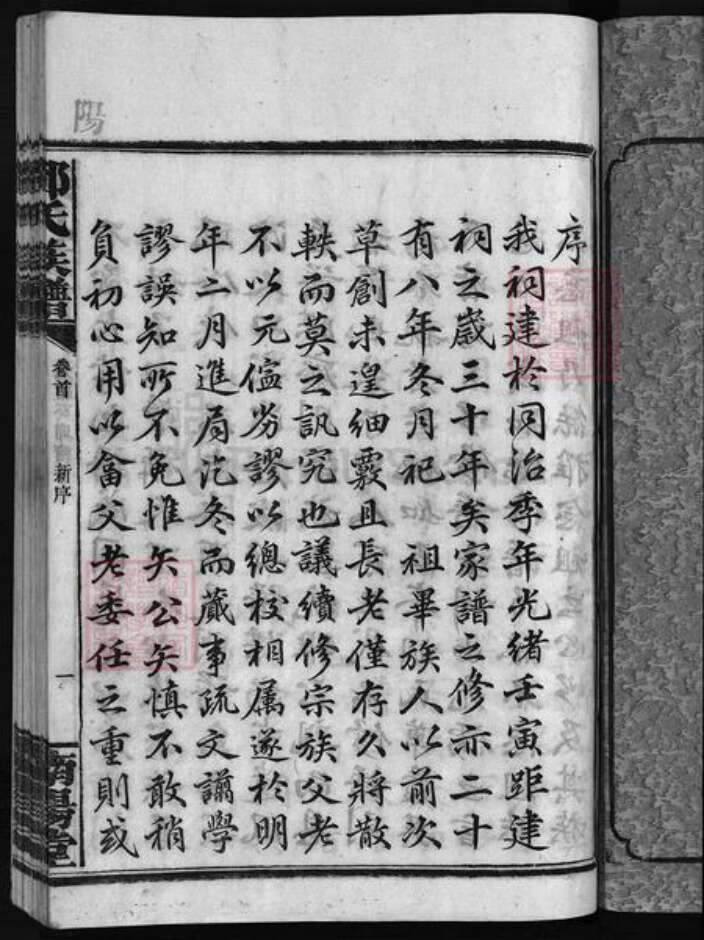 序
我祠建於同治季年光緒壬寅距建
祠之歲三十年矣家譜之修亦二十
有八年冬月祀 祖畢族人以前次
草創未遑細覈且長老僅存久將散
軼而莫之訊究也議續修宗族父老
不以元儘劣謬以總校相属遂於明
年二月進局汔冬而蕆事疏文譾學
謬誤知所不免惟矢公矢慎不敢稍
負初心用以畣父老委任之重則或
陽
氏族譜
卷首
新序
一
陽堂